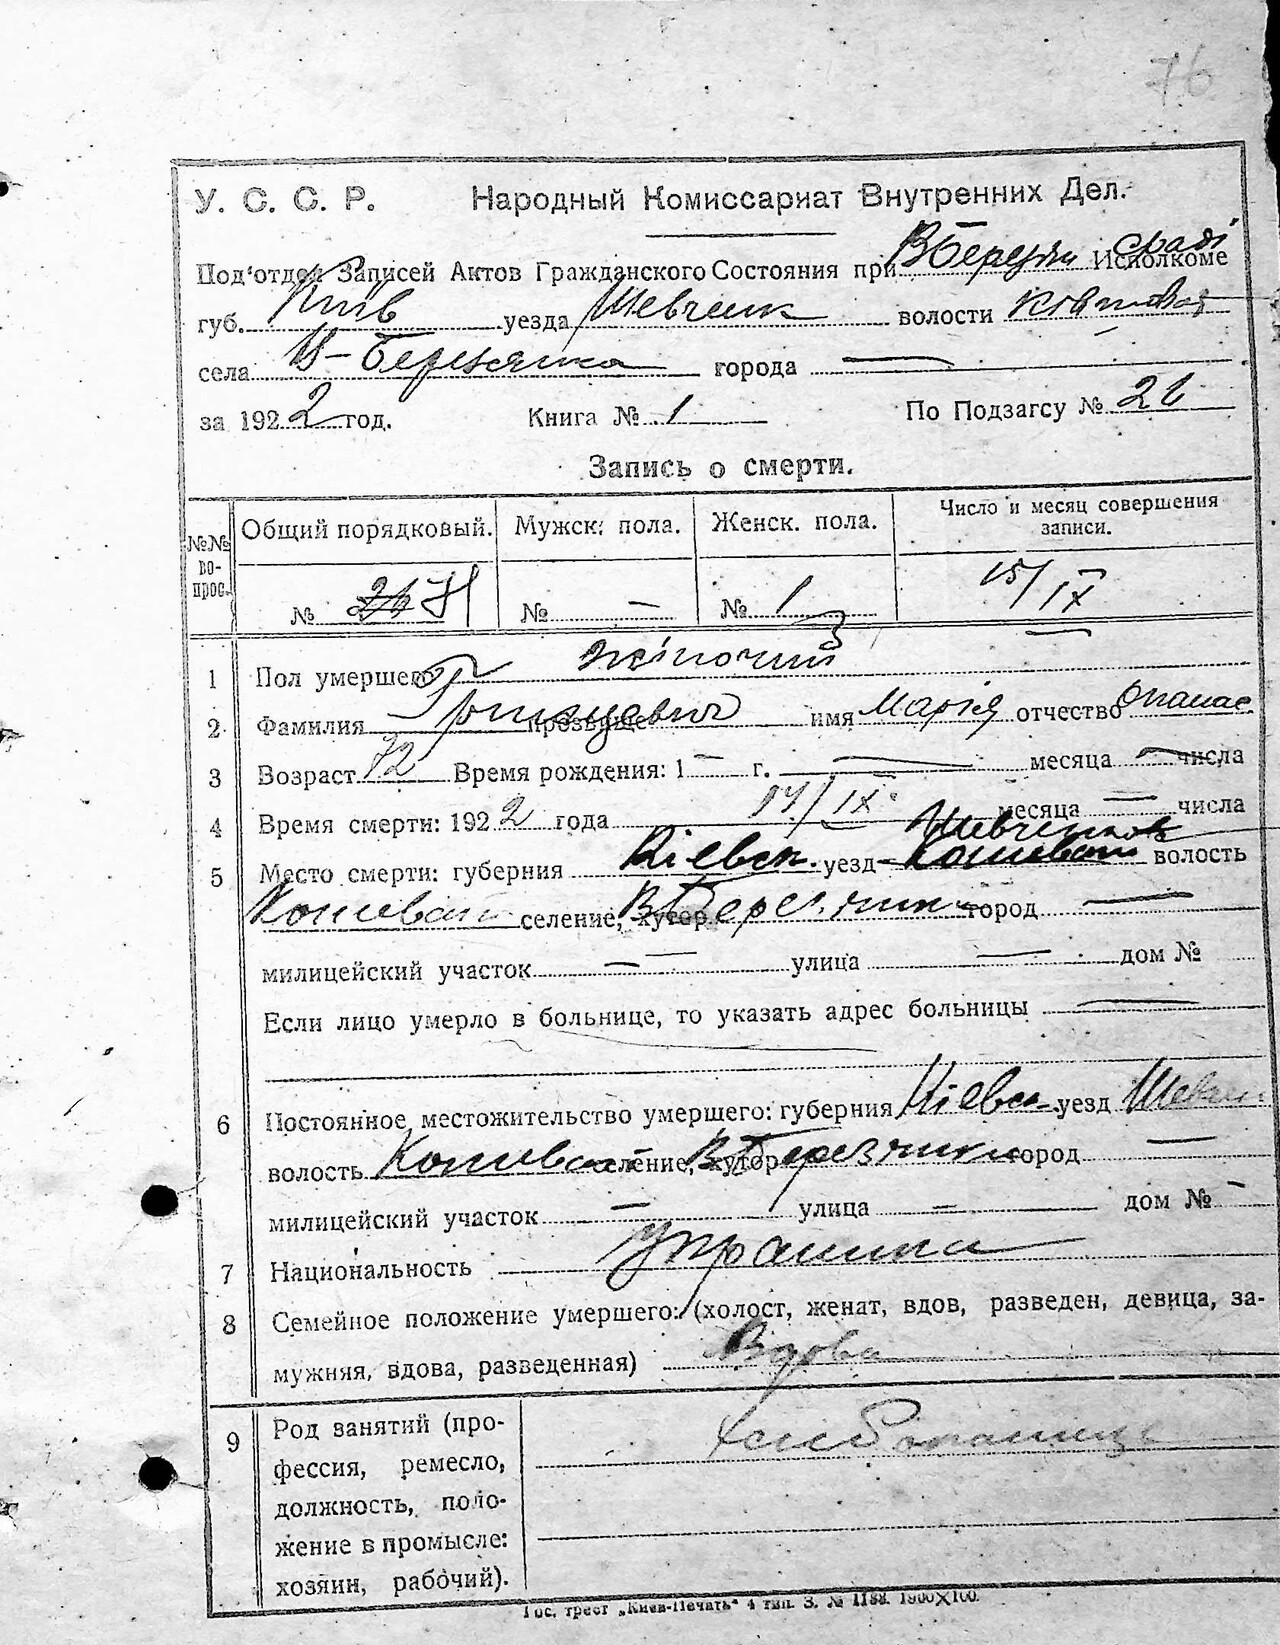 76
У. С. С. Р. Народный Комиссариат Внутренних Дел.
Под'отдел Записей Актов Гражданского Состояния при Исполкоме
губ. Київ уезда Шевченк волости
села В-Березянка города —
за 1922 год. Книга № 1 По Подзагсу № 26
Запись о смерти.
№№ во-прос. Общий порядковый. Мужск. пола. Женск. пола. Число и месяц совершения записи.
№ 26 № — № 1 15/IX
1 Пол умершего жіночий
2 Фамилия прозвище имя Марія отчество Опанас
3 Возраст 72 Время рождения: 1 — г. — месяца — числа
4 Время смерти: 1922 года 14/IX месяца — числа
Шевченков
5 Место смерти: губерния Кіевск. уезд волость
Кошеват селение, хутор В Березянк город —
милицейский участок — улица — дом №
Если лицо умерло в больнице, то указать адрес больницы —
6 Постоянное местожительство умершего: губерния Кіевск уезд Шевчен
волость Кошеват селение, хутор В Березянк город —
милицейский участок — улица — дом № —
7 Национальность Украинка
8 Семейное положение умершего: (холост, женат, вдов, разведен, девица, за-
мужняя, вдова, разведенная) Вдова
9 Род занятий (про-
фессия, ремесло,
должность, поло-
жение в промысле:
хозяин, рабочий).
Гос. трест „Киев-Печать" 4 тип. З. № 1188. 1900X100.